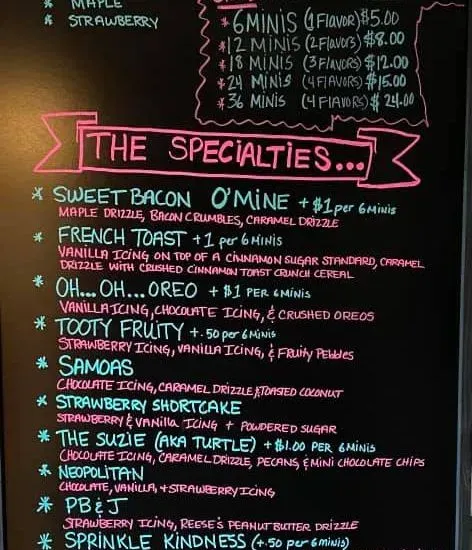 * MAPLE
* STRAWBERRY
* 6 MINIS (1 FLAVOR) $5.00
* 12 MINIS (2 FLAVORS) $8.00
* 18 MINIS (3 FLAVORS) $12.00
* 24 MINIS (4 FLAVORS) $15.00
* 36 MINIS (4 FLAVORS) $24.00
THE SPECIALTIES...
* SWEET BACON O'MINE + $1 per 6 Minis
MAPLE DRIZZLE, BACON CRUMBLES, CARAMEL DRIZZLE
* FRENCH TOAST +1 per 6 Minis
VANILLA ICING ON TOP OF A CINNAMON SUGAR STANDARD, CARAMEL
DRIZZLE WITH CRUSHED CINNAMON TOAST CRUNCH CEREAL
* OH...OH...OREO + $1 PER 6 MINIS
VANILLA ICING, CHOCOLATE ICING, & CRUSHED OREOS
* TOOTY FRUITY +.50 per 6 Minis
STRAWBERRY ICING, VANILLA ICING, & Fruity Pebbles
* SAMOAS
CHOCOLATE ICING, CARAMEL DRIZZLE & TOASTED COCONUT
* STRAWBERRY SHORTCAKE
STRAWBERRY & VANILLA ICING + POWDERED SUGAR
* THE SUZIE (AKA TURTLE) +$1.00 PER 6 MINIS
CHOCOLATE ICING, CARAMEL DRIZZLE, PECANS, & MINI CHOCOLATE CHIPS
* NEOPOLITAN
CHOCOLATE, VANILLA, + STRAWBERRY ICING
* PB & J
STRAWBERRY ICING, REESE'S PEANUT BUTTER DRIZZLE
* SPRINKLE KINDNESS (+.50 per 6 minis)